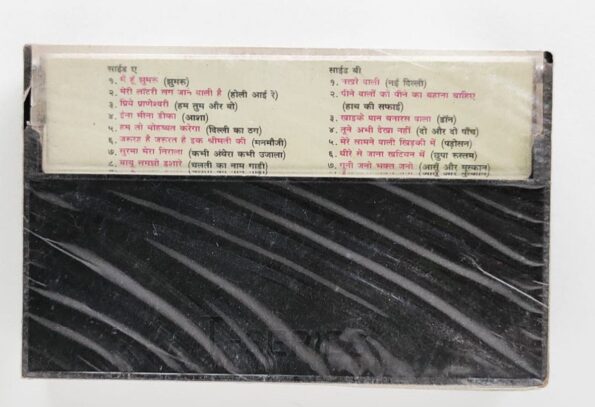 साईड ए
१. मैं हूं झुमरू (झुमरू)
२. मेरी लॉटरी लग जाने वाली है (होली आई रे)
३. प्रिये प्राणेश्वरी (हम तुम और वो)
४. ईना मीना डीका (आशा)
५. हम तो मोहब्बत करेगा (दिल्ली का ठग)
६. जरूरत है जरूरत है इक श्रीमती की (मनमौजी)
७. सुरमा मेरा निराला (कभी अंधेरा कभी उजाला)
८. बाबू समझो इशारे (चलती का नाम गाड़ी)
साईड बी
१. नखरे वाली (नई दिल्ली)
२. पीने वालों को पीने का बहाना चाहिए
(हाथ की सफाई)
३. खाइके पान बनारस वाला (डॉन)
४. तूने अभी देखा नहीं (दो और दो पाँच)
५. मेरे सामने वाली खिड़की में (पड़ोसन)
६. धीरे से जाना खटियन में (छुपा रुस्तम)
७. गुनी जनो भक्त जनो (आँसू और मुस्कान)
T-SERIES